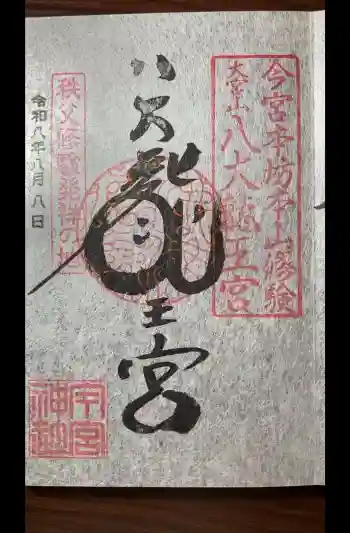 今宮本坊本山修験
大宮山八大龍王宮
八大龍王宮
秩父修験発祥の地
令和八年八月八日
今宮神社